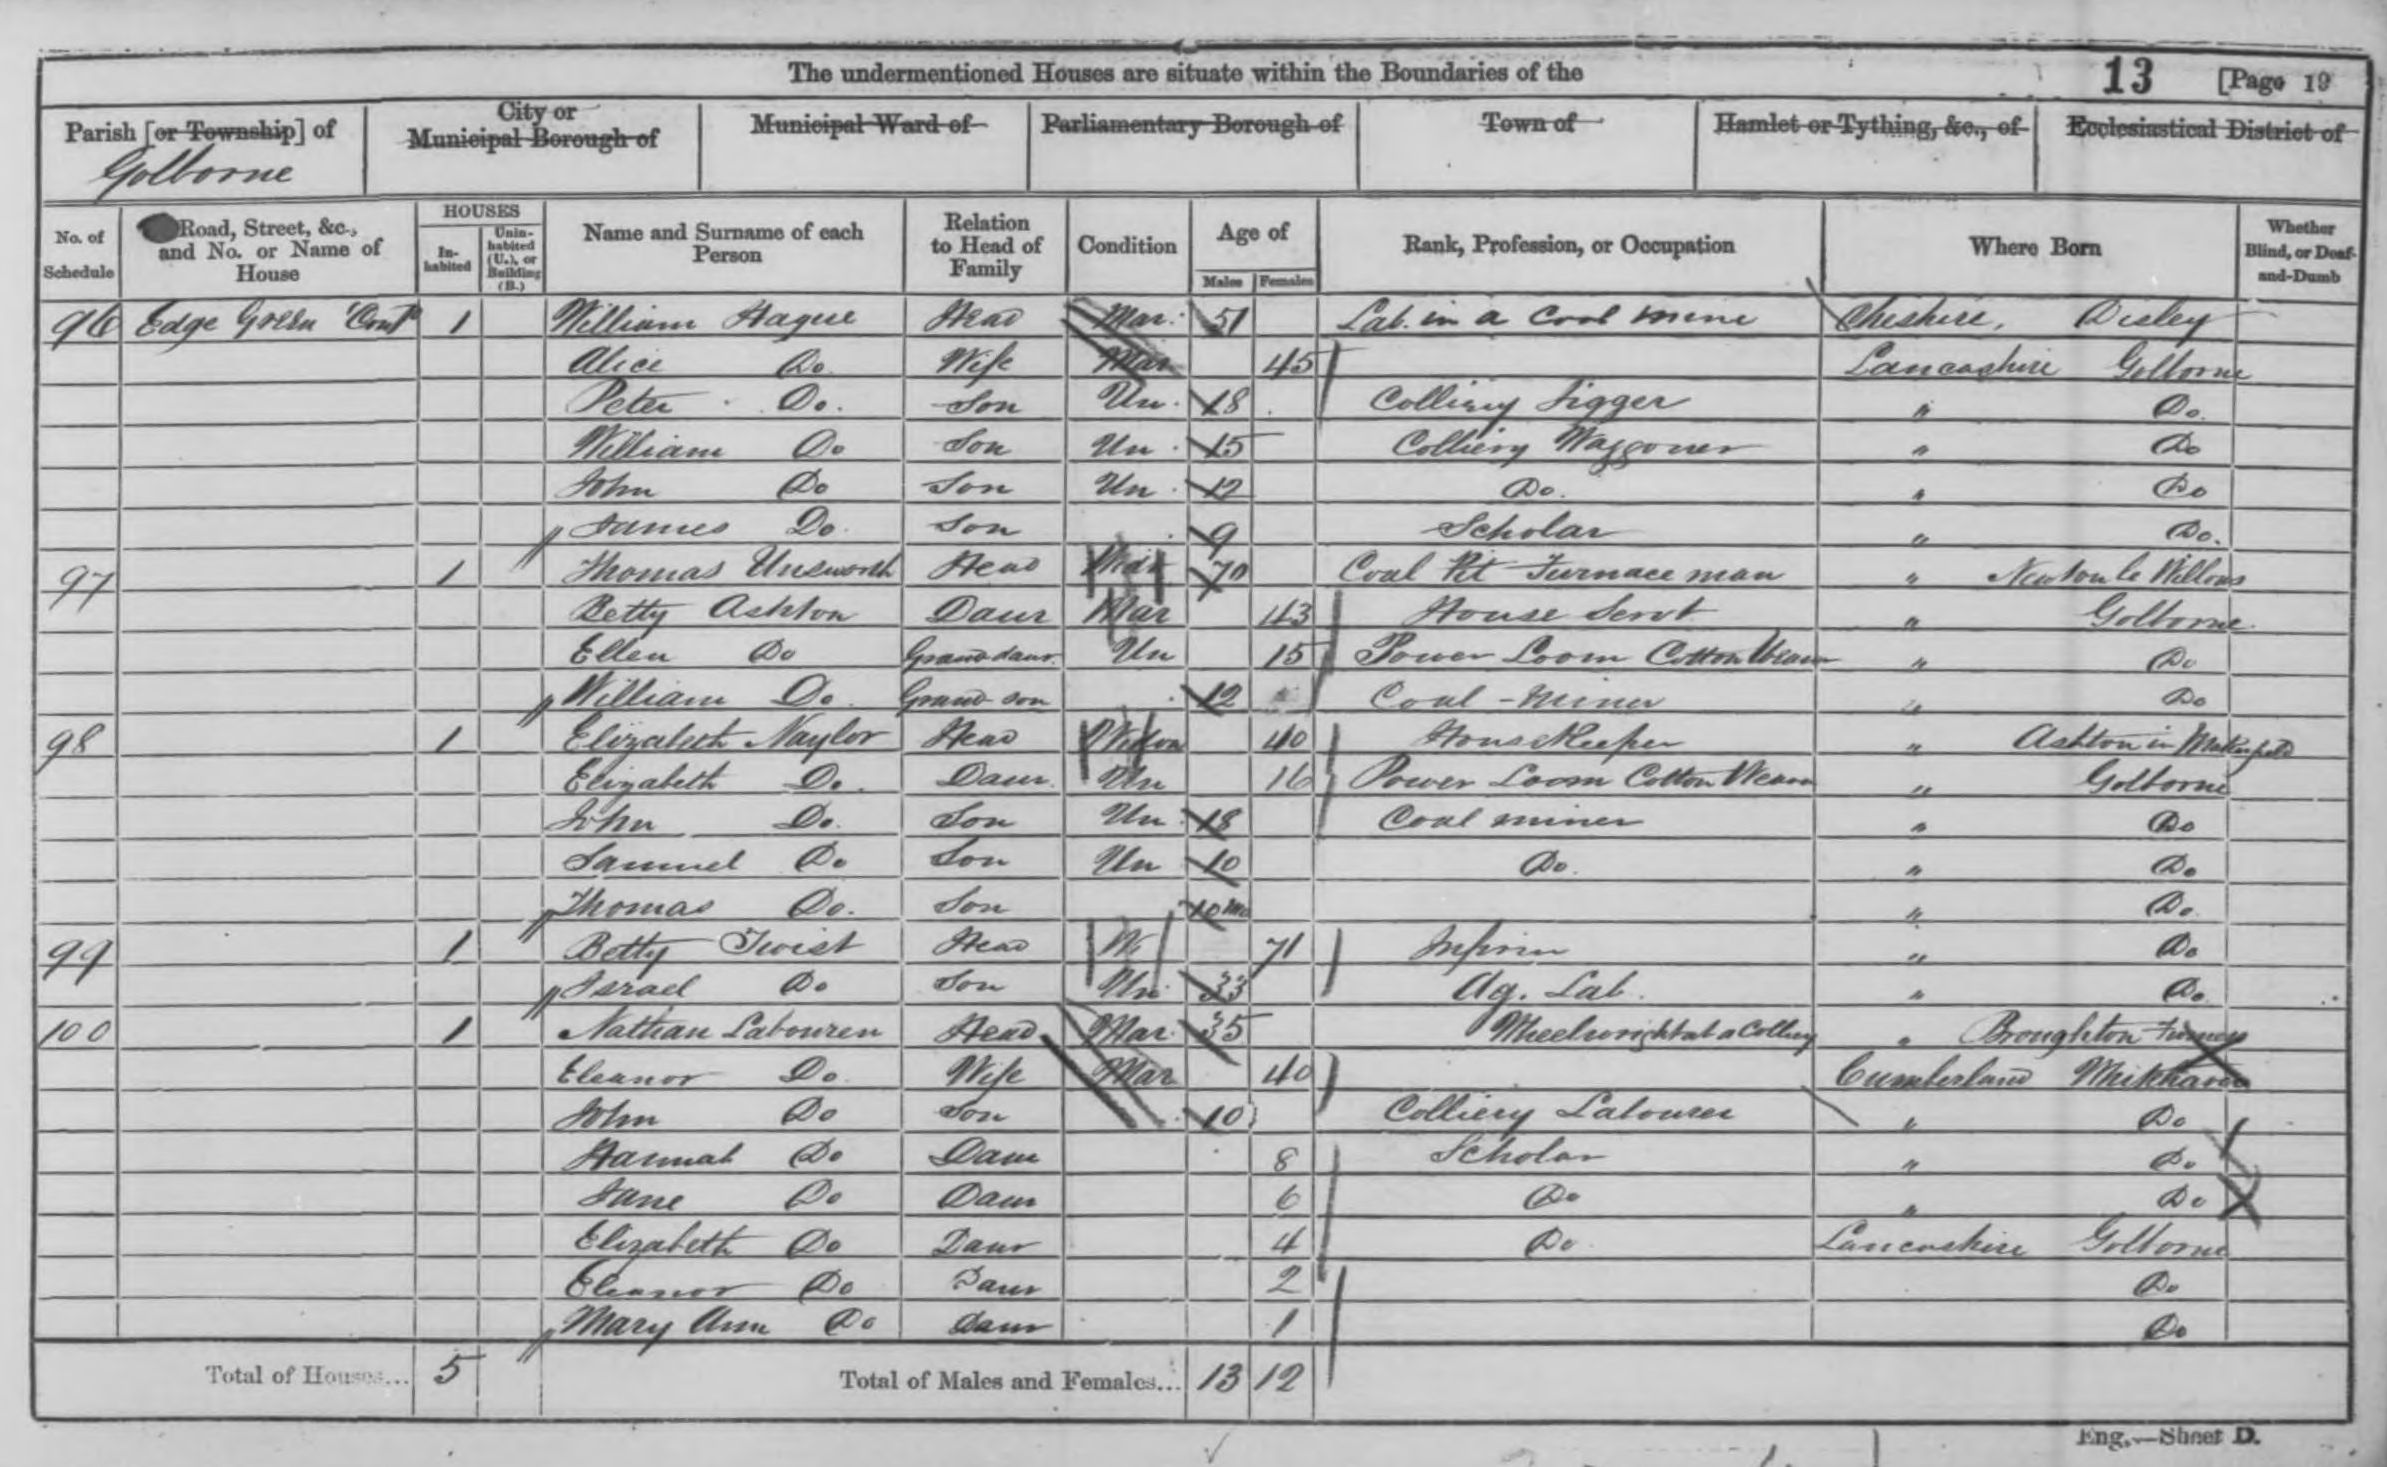 The undermentioned Houses are situate within the Boundaries of the 13 [Page 19
Parish [or Township] of Golborne City or Municipal Borough of Municipal Ward of Parliamentary Borough of Town of Hamlet or Tything, &c., of Ecclesiastical District of
No. of Schedule Road, Street, &c., and No. or Name of House HOUSES Inhabited Uninhabited (U.), or Building (B.) Name and Surname of each Person Relation to Head of Family Condition Age of Males Females Rank, Profession, or Occupation Where Born Whether Blind, or Deaf-and-Dumb
96 Edge Green Cont 1 William Hague Head Mar. 51 Lab. in a Coal mine Cheshire, Disley
Alice Do. Wife Mar 45 Lancashire Golborne
Peter Do. Son Un. 18 Colliery Jigger " Do.
William Do Son Un. 15 Colliery Waggoner " Do
John Do Son Un. 12 Do. " Do
James Do. Son 9 Scholar " Do.
97 1 Thomas Unsworth Head 70 Coal Pit Furnace man " Newton le Willows
Betty Ashton Daur Mar 43 House Servt " Golborne
Ellen Do Grand daur. Un 15 Power Loom Cotton Weaver " Do
William Do. Grand son 12 Coal-Miner " Do
98 1 Elizabeth Naylor Head Widow 40 HouseKeeper " Ashton in Makerfield
Elizabeth Do. Daur. Un 16 Power Loom Cotton Weaver " Golborne
John Do. Son Un 18 Coal miner " Do
Samuel Do Son Un 10 Do. " Do
Thomas Do. Son 10 mo " Do
99 1 Betty Twist Head W 71 Infirm " Do
Israel Do Son Un 33 Ag. Lab. " Do.
100 1 Nathan Labouren Head Mar. 35 Wheelwright at a Colliery " Broughton Furness
Eleanor Do. Wife Mar 40 Cumberland Whithaven
John Do Son 10 Colliery Labourer " Do
Hannah Do Daur 8 Scholar " Do
Jane Do Daur 6 Do " Do
Elizabeth Do Daur 4 Do. Lancashire Golborne
Eleanor Do Daur 2 Do
Mary Ann Do Daur 1 Do
Total of Houses... 5 Total of Males and Females... 13 12
Eng.—Sheet D.